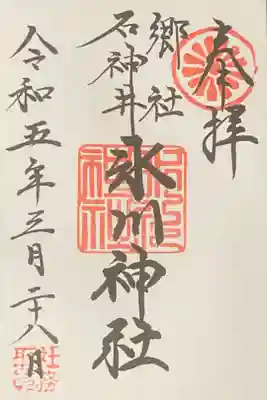 奉拝
郷社
石神井
氷川神社
令和五年三月二十八日